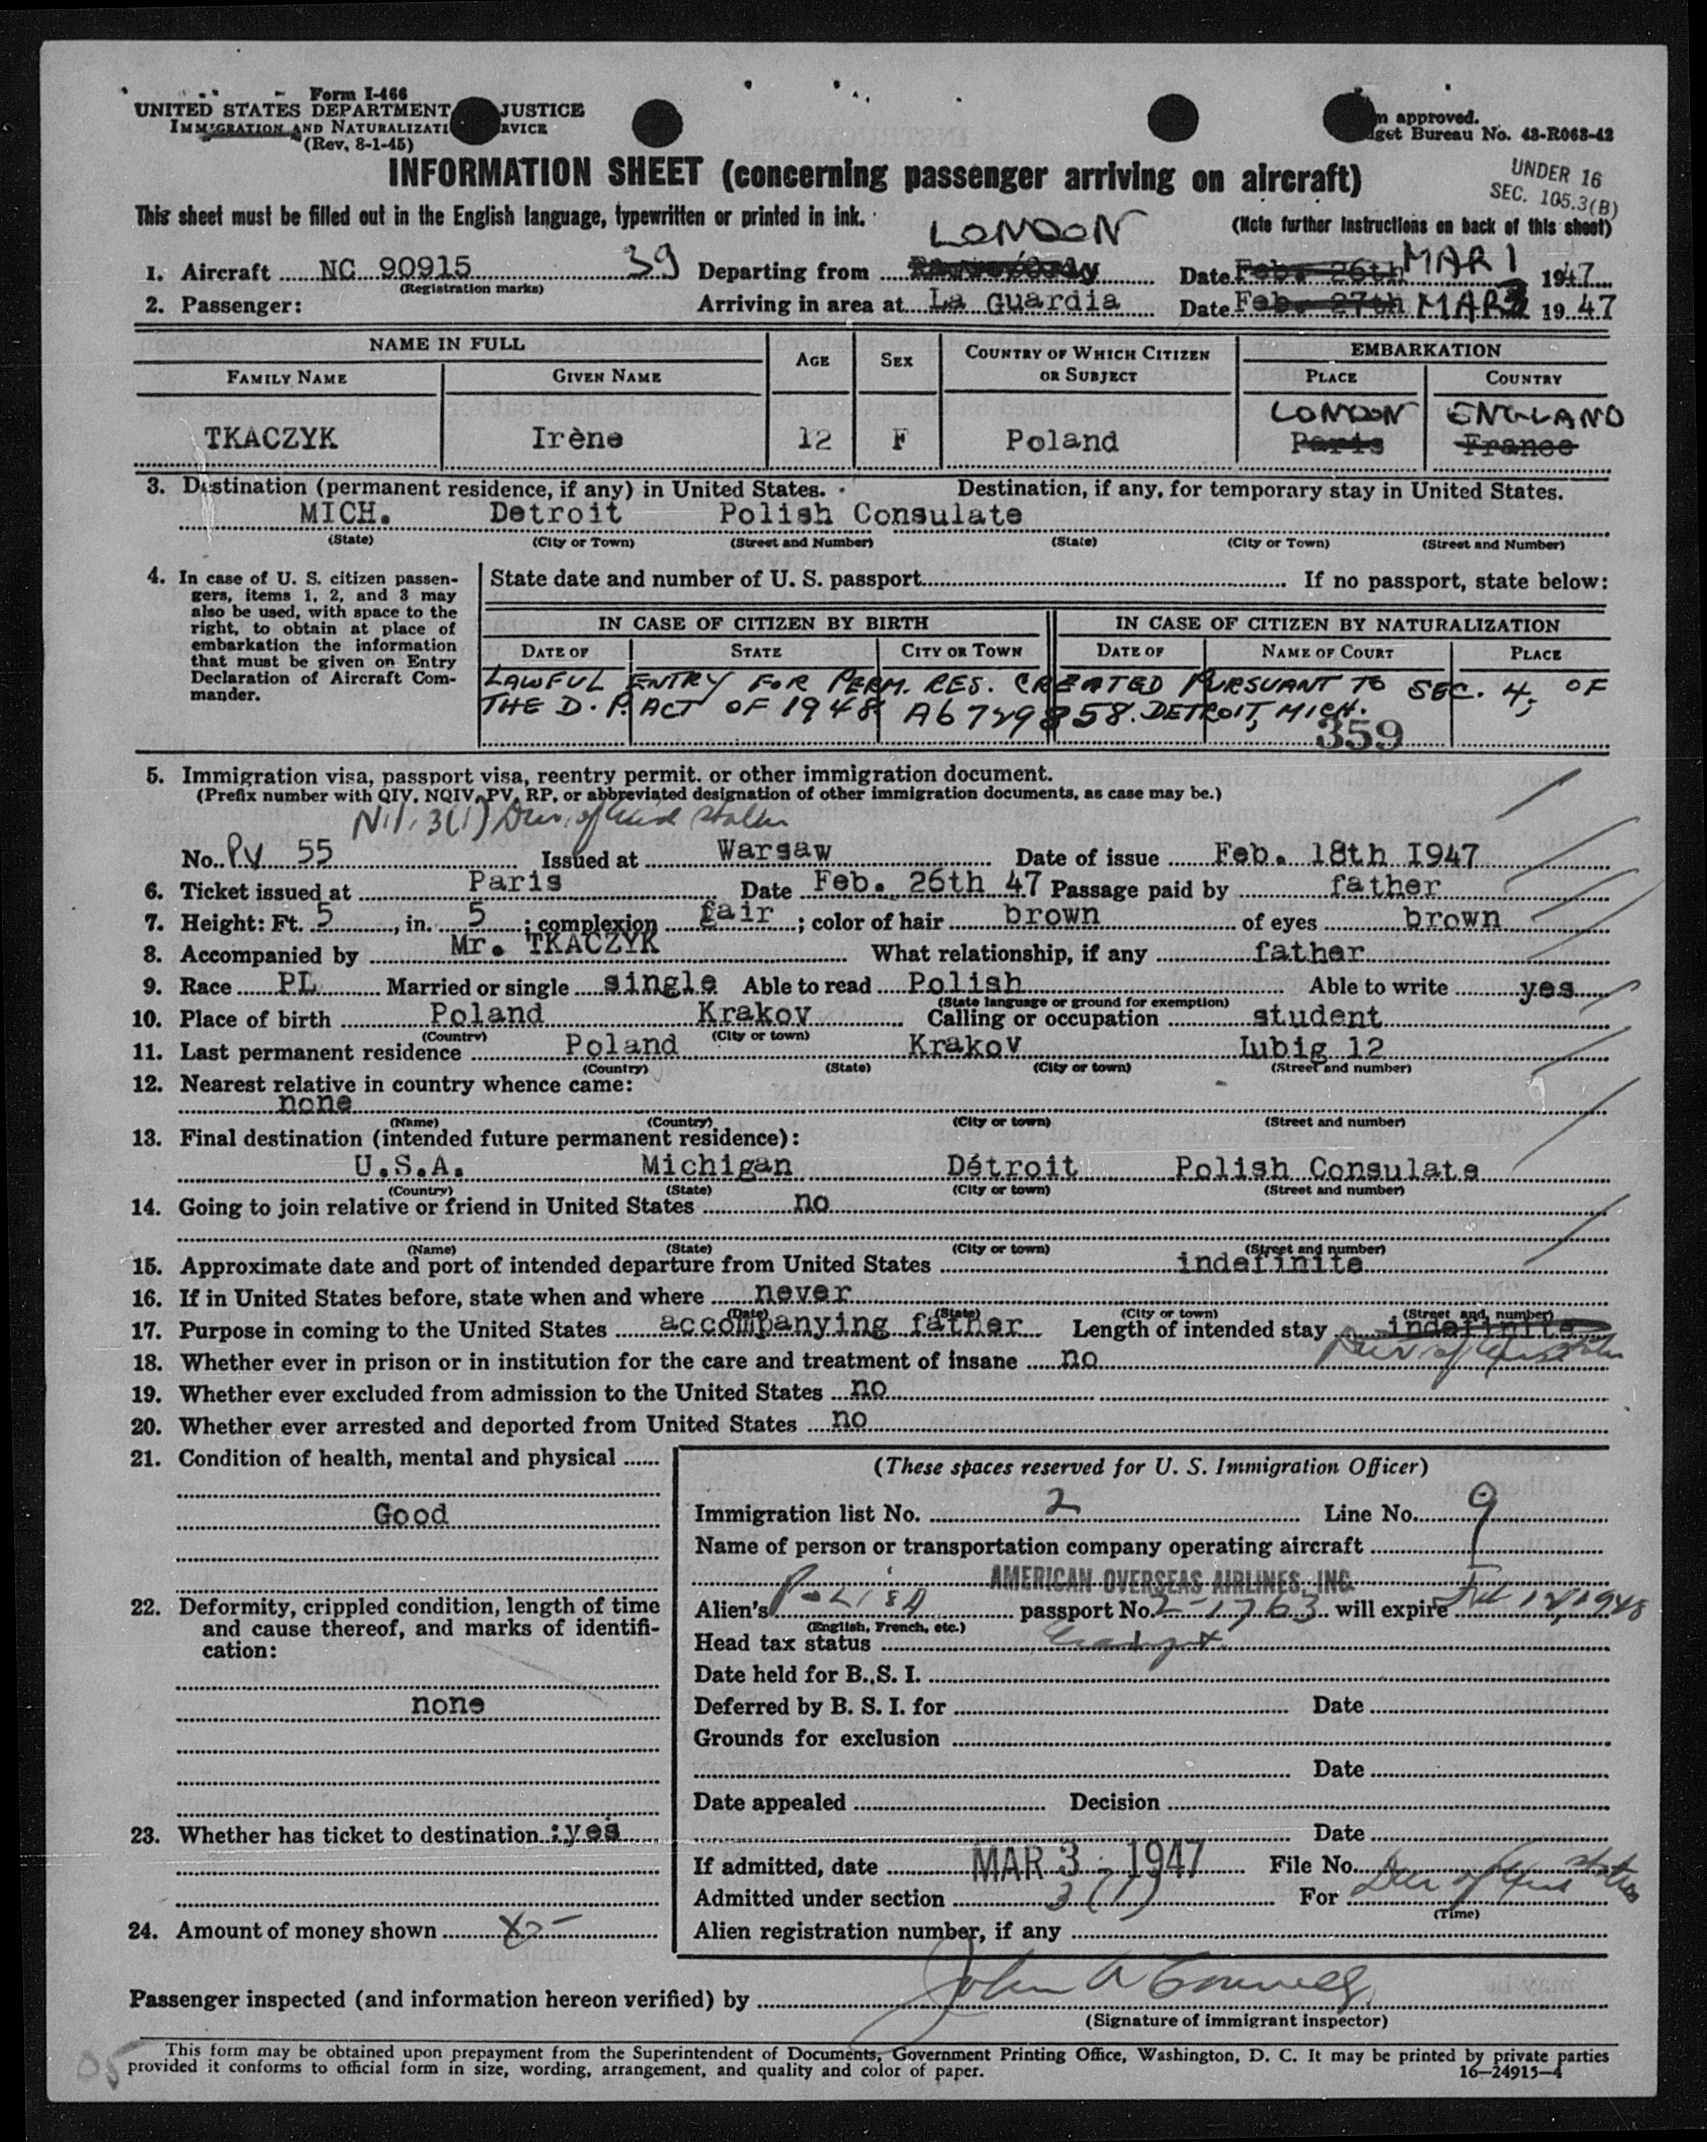 Form I-466
UNITED STATES DEPARTMENT JUSTICE
IMMIGRATION AND NATURALIZATI RVICE
(Rev. 8-1-45)
m approved.
get Bureau No. 43-R063-42
INFORMATION SHEET (concerning passenger arriving on aircraft)
UNDER 16
SEC. 105.3(B)
This sheet must be filled out in the English language, typewritten or printed in ink.
(Note further instructions on back of this sheet)
LONDON
1. Aircraft NC 90915 39 Departing from Date Feb. 26th MAR 1 1947
(Registration marks)
2. Passenger: Arriving in area at La Guardia Date Feb. 27th MAR 3 1947
NAME IN FULL AGE SEX COUNTRY OF WHICH CITIZEN OR SUBJECT EMBARKATION
FAMILY NAME GIVEN NAME PLACE COUNTRY
LONDON ENGLAND
TKACZYK Irène 12 F Poland Paris France
3. Destination (permanent residence, if any) in United States. Destination, if any, for temporary stay in United States.
MICH. Detroit Polish Consulate
(State) (City or Town) (Street and Number) (State) (City or Town) (Street and Number)
4. In case of U. S. citizen passengers, items 1, 2, and 3 may also be used, with space to the right, to obtain at place of embarkation the information that must be given on Entry Declaration of Aircraft Commander.
State date and number of U. S. passport If no passport, state below:
IN CASE OF CITIZEN BY BIRTH IN CASE OF CITIZEN BY NATURALIZATION
DATE OF STATE CITY OR TOWN DATE OF NAME OF COURT PLACE
LAWFUL ENTRY FOR PERM. RES. CREATED PURSUANT TO SEC. 4, OF
THE D.P. ACT OF 1948 A6729858. DETROIT, MICH.
359
5. Immigration visa, passport visa, reentry permit. or other immigration document.
(Prefix number with QIV, NQIV, PV, RP, or abbreviated designation of other immigration documents, as case may be.)
3(1) Dur. of
No. PV 55 Issued at Warsaw Date of issue Feb. 18th 1947
6. Ticket issued at Paris Date Feb. 26th 47 Passage paid by father
7. Height: Ft. 5, in. 5; complexion fair; color of hair brown of eyes brown
8. Accompanied by Mr. TKACZYK What relationship, if any father
9. Race PL Married or single single Able to read Polish Able to write yes
(State language or ground for exemption)
10. Place of birth Poland Krakov Calling or occupation student
(Country) (City or town)
11. Last permanent residence Poland Krakov Lubig 12
(Country) (State) (City or town) (Street and number)
12. Nearest relative in country whence came:
none
(Name) (Country) (City or town) (Street and number)
13. Final destination (intended future permanent residence):
U.S.A. Michigan Détroit Polish Consulate
(Country) (State) (City or town) (Street and number)
14. Going to join relative or friend in United States no
(Name) (State) (City or town) (Street and number)
15. Approximate date and port of intended departure from United States indefinite
16. If in United States before, state when and where never
(Date) (State) (City or town) (Street and number)
17. Purpose in coming to the United States accompanying father Length of intended stay indefinite
18. Whether ever in prison or in institution for the care and treatment of insane no
19. Whether ever excluded from admission to the United States no
20. Whether ever arrested and deported from United States no
21. Condition of health, mental and physical
Good
22. Deformity, crippled condition, length of time and cause thereof, and marks of identification:
none
23. Whether has ticket to destination :yes
24. Amount of money shown
(These spaces reserved for U. S. Immigration Officer)
Immigration list No. 2 Line No. 9
Name of person or transportation company operating aircraft
AMERICAN OVERSEAS AIRLINES, INC.
Alien's POLISH passport No. 2-1763 will expire 1948
(English, French, etc.)
Head tax status
Date held for B. S. I.
Deferred by B. S. I. for Date
Grounds for exclusion
Date
Date appealed Decision
Date
If admitted, date MAR 3 - 1947 File No.
Admitted under section 3(1) For Dur of
(Time)
Alien registration number, if any
Passenger inspected (and information hereon verified) by John
(Signature of immigrant inspector)
This form may be obtained upon prepayment from the Superintendent of Documents, Government Printing Office, Washington, D. C. It may be printed by private parties
provided it conforms to official form in size, wording, arrangement, and quality and color of paper. 16—24915-4
05